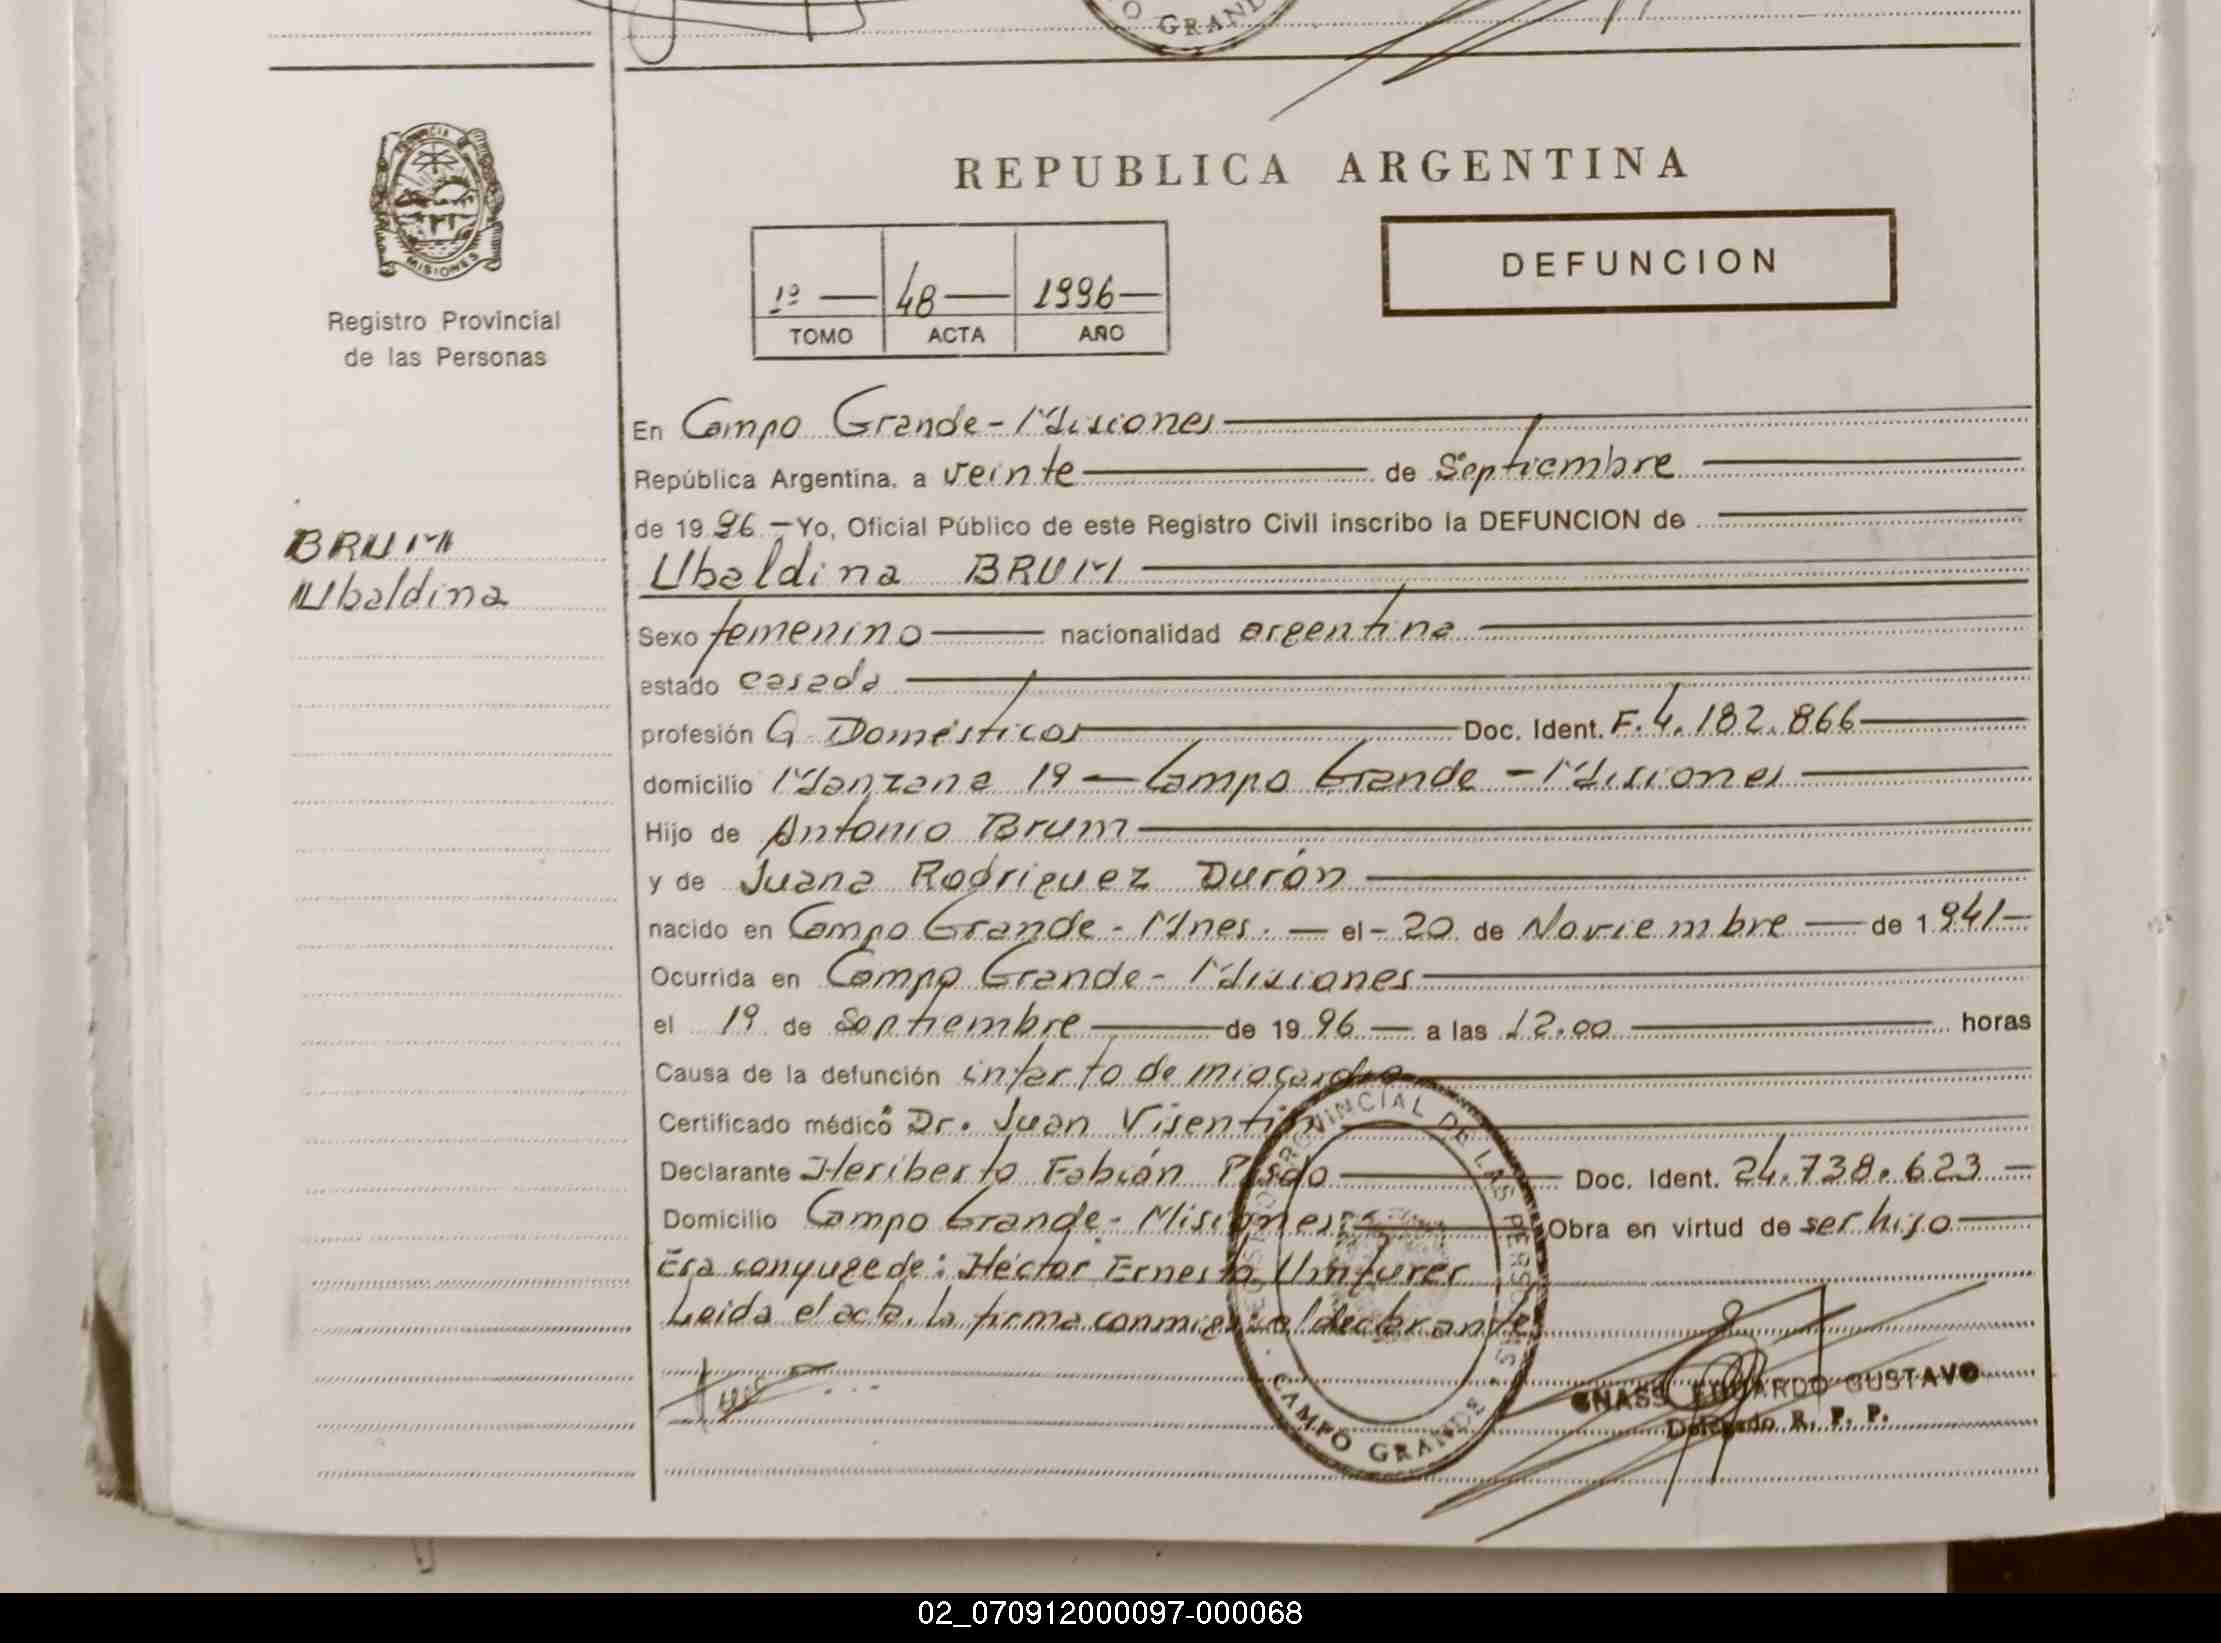 O GRAND
REPUBLICA ARGENTINA
PROVINCIA
MISIONES
Registro Provincial
de las Personas
DEFUNCION
1º — 48 — 1996 —
TOMO ACTA AÑO
En Campo Grande - Misiones
República Argentina, a veinte de Septiembre
de 1996 - Yo, Oficial Público de este Registro Civil inscribo la DEFUNCION de
BRUM
Ubaldina
Ubaldina BRUM
Sexo femenino nacionalidad argentina
estado casada
profesión Q. Domésticos Doc. Ident. F. 4.182.866
domicilio Manzana 19 - Campo Grande - Misiones
Hijo de Antonio Brum
y de Juana Rodriguez Durón
nacido en Campo Grande - Mnes. - el - 20 de Noviembre de 1941
Ocurrida en Campo Grande - Misiones
el 19 de Septiembre de 1996 a las 12.00 horas
Causa de la defunción infarto de miocardio
Certificado médico Dr. Juan Visentin
Declarante Heriberto Fabián Doc. Ident. 24.738.623
Domicilio Campo Grande - Misiones Obra en virtud de ser hijo
Era conyuge de: Héctor Ernesto
Leida el acta, la firma conmigo el declarante
PROVINCIAL DE LAS PERSONAS
CAMPO GRANDE
GNASS EDUARDO GUSTAVO
Delegado R. P. P.
02_070912000097-000068